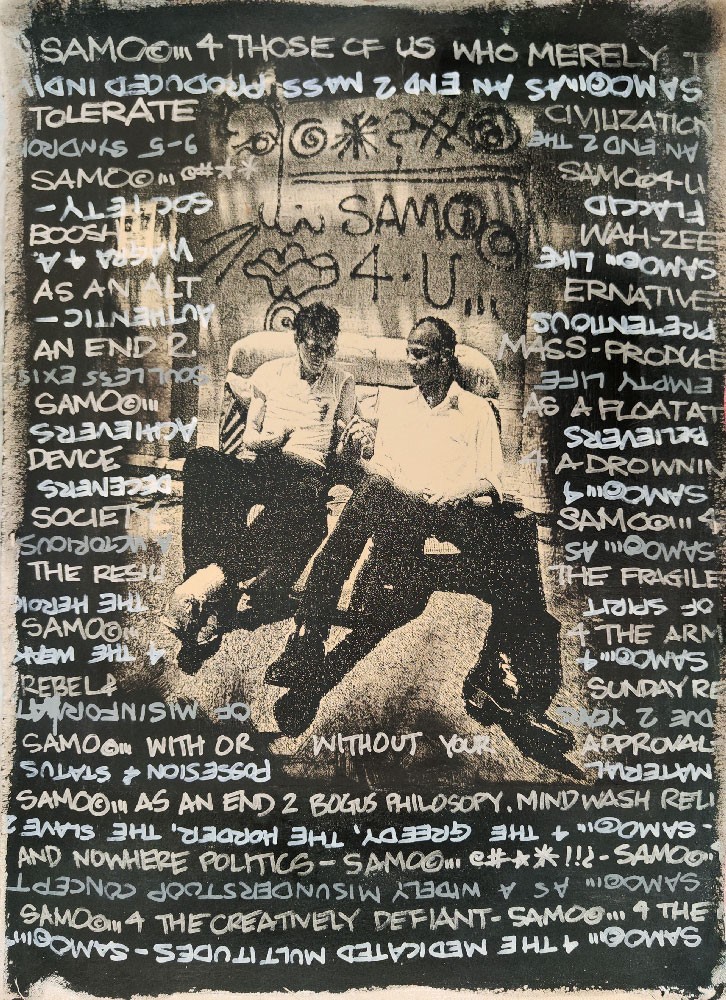 SAMO©... 4 THOSE OF US WHO MERELY T
SAMO©... AS AN END 2 MASS PRODUCED INDIV
TOLERATE CIVILIZATION
AN END 2 THE 9-5 SYNDRO
SAMO©... @#** SAMO©4-U
FLACCID SOCIETY-
BOOSH WAH-ZEE
SAMO©... LIKE VIAGRA 4 A
SAMO©
4·U...
AS AN ALT ERNATIVE
PRETENTIOUS AUTHENTIC-
AN END 2 MASS-PRODUCE
EMPTY LIFE SOULLESS EXIS
SAMO©... AS A FLOATAT
BELIEVERS ACHIEVERS
DEVICE 4 A DROWNIN
SAMO©... 4 DECEIVERS
SOCIETY SAMO©... 4
SAMO©... AS A VICTORIOUS
THE RESIL THE FRAGILE
OF SPIRIT THE HEROI
SAMO©... 4 THE ARM
SAMO©... 4 THE WEAK
REBEL& SUNDAY RE
DUE 2 YEARS OF MISINFORMAT
SAMO©... WITH OR WITHOUT YOUR APPROVAL
MATERIAL POSSESION & STATUS
SAMO©... AS AN END 2 BOGUS PHILOSOPY, MINDWASH RELI
-SAMO©... 4 THE GREEDY, THE HORDER, THE SLAVE 2
AND NOWHERE POLITICS - SAMO©... @#**!!? - SAMO©...
SAMO©... AS A WIDELY MISUNDERSTOOD CONCEPT
SAMO©... 4 THE CREATIVELY DEFIANT- SAMO©... 4 THE
SAMO©... 4 THE MEDICATED MULTITUDES-SAMO©...